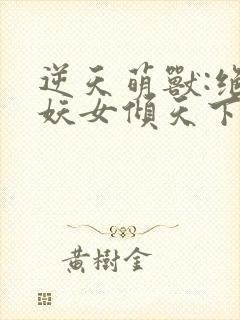 逆天萌獸:絕
妖女傾天下
黃樹金